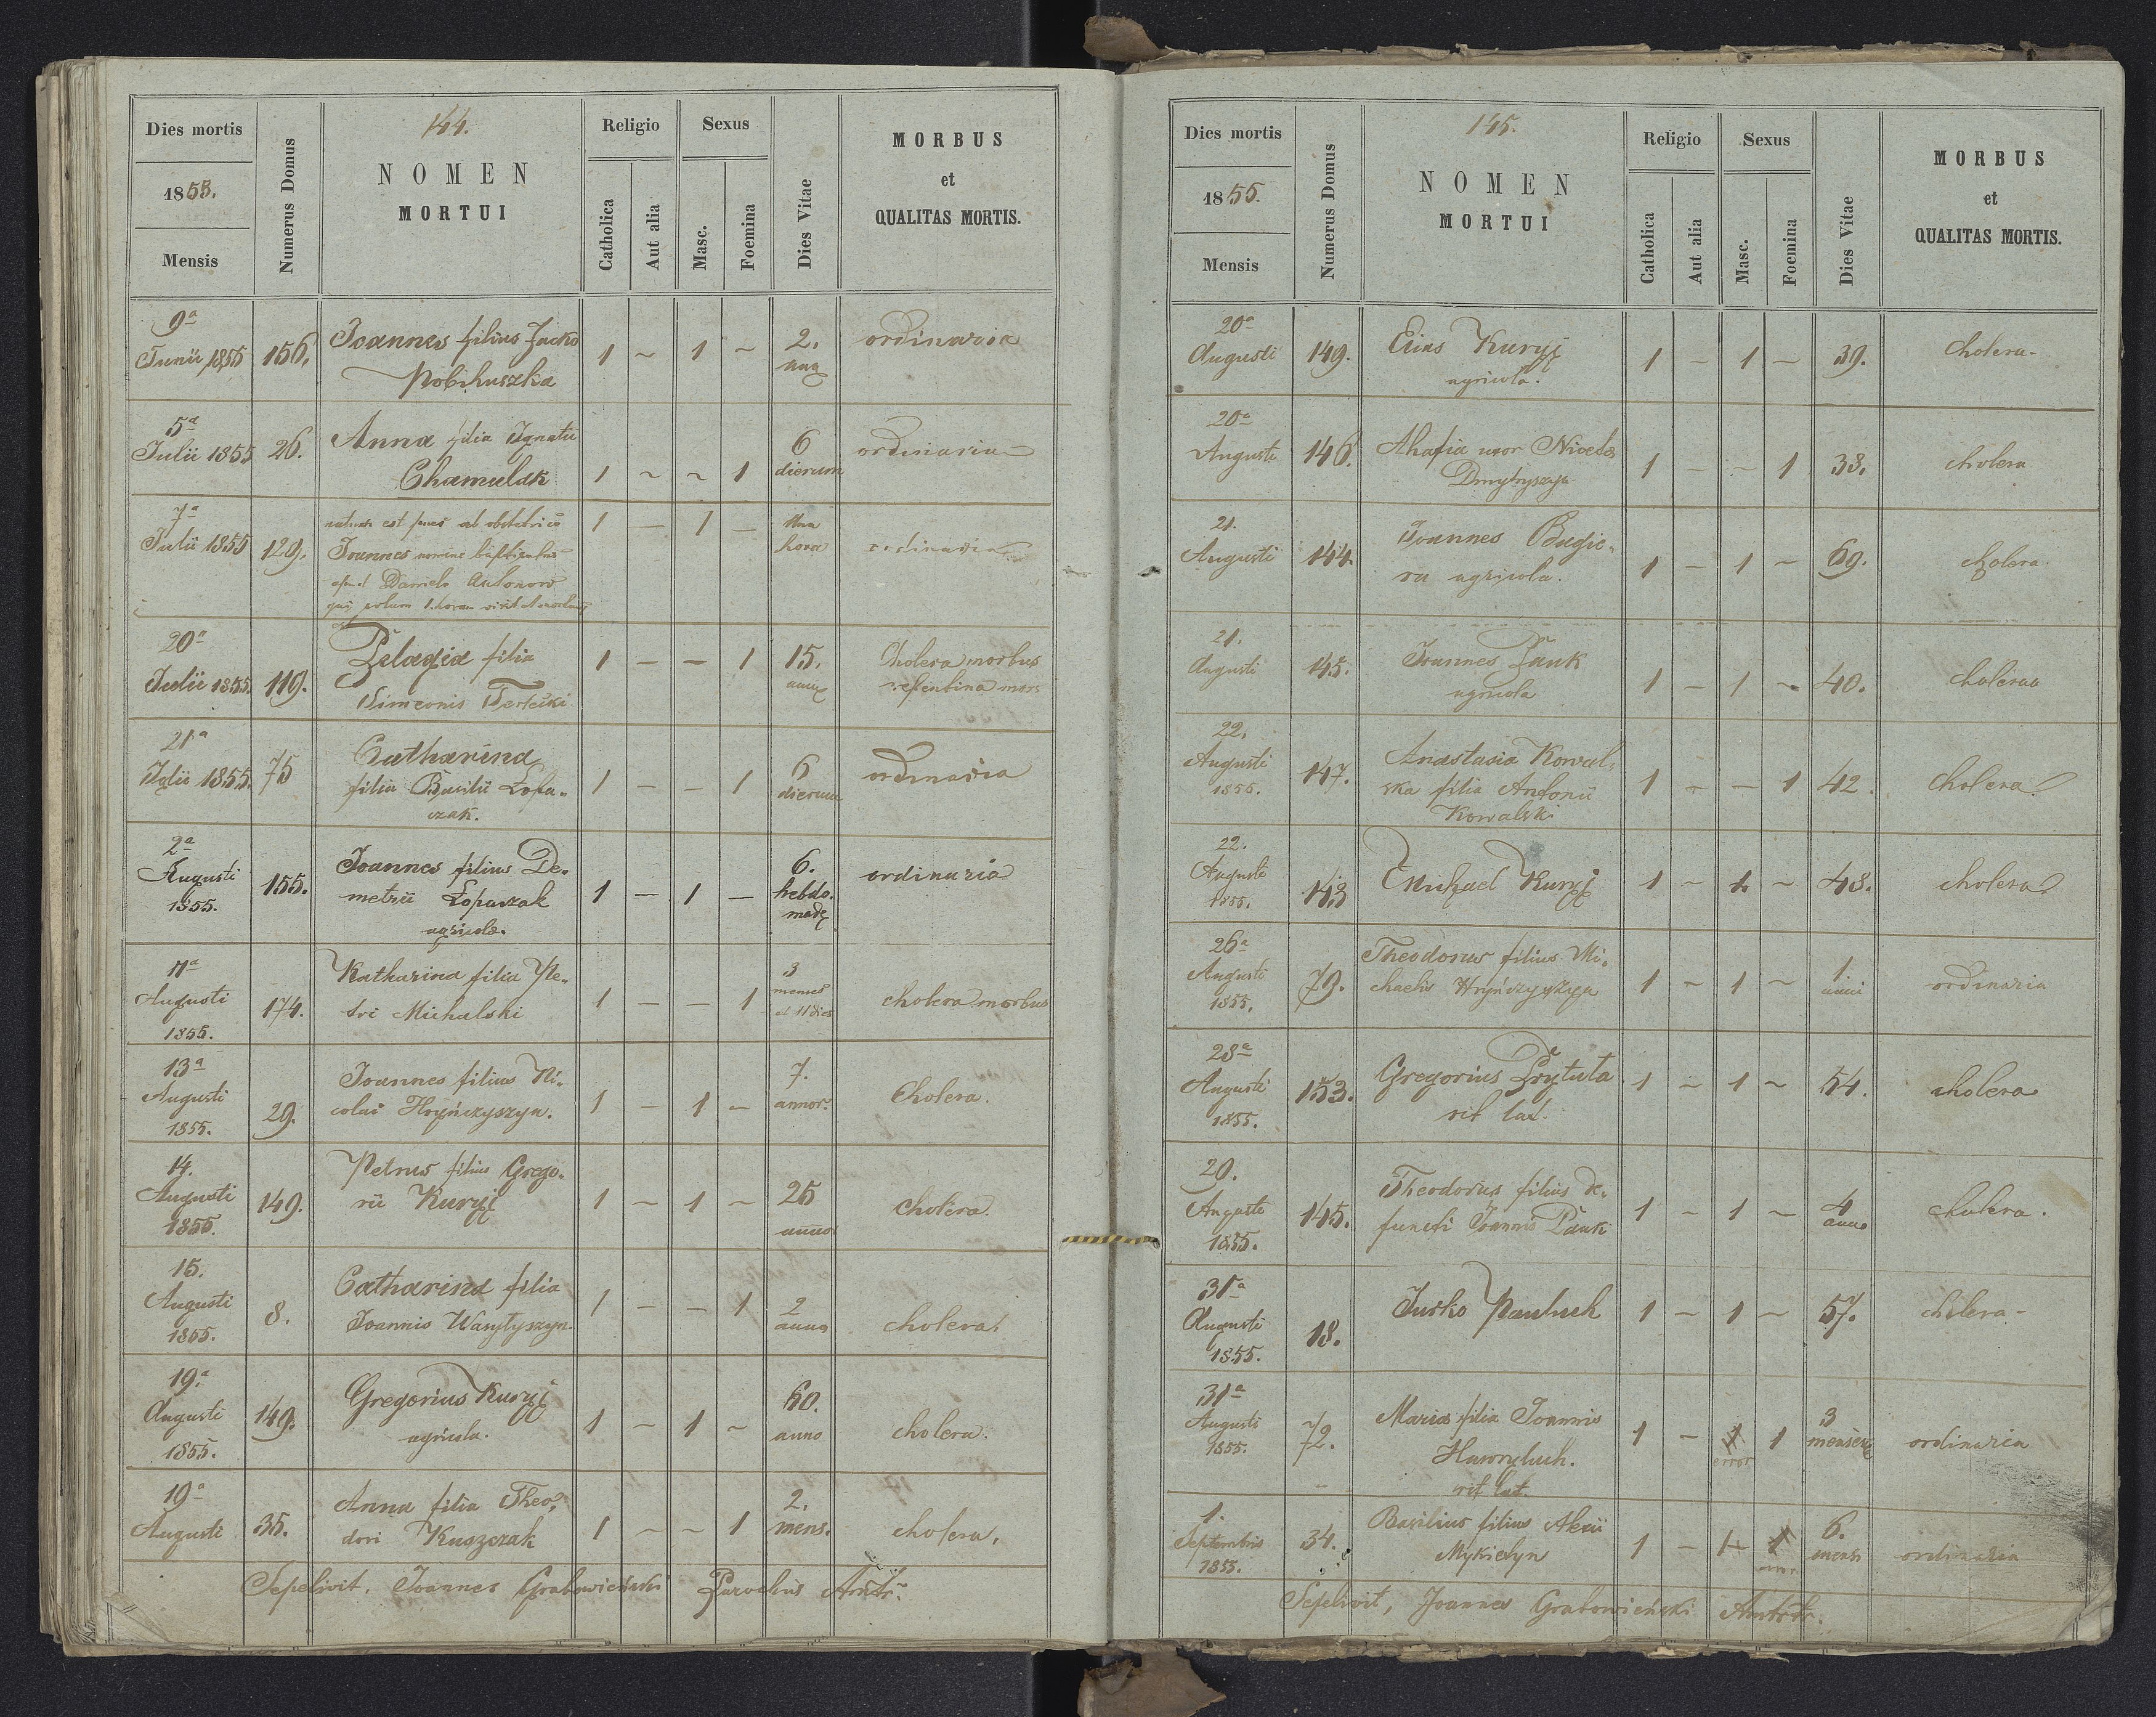 144.
Dies mortis
1855.
Mensis
Numerus Domus
NOMEN
MORTUI
Religio
Catholica
Aut alia
Sexus
Masc.
Foemina
Dies Vitae
MORBUS
et
QUALITAS MORTIS.
9a
Junii 1855 156. Joannes filius Jacko 1 ~ 1 ~ 2. ordinaria
Pobihuszka
5a
Julii 1855 26. Anna filia Ignatii 6 ordinaria
Chamulak 1 ~ ~ 1 dierum
7a
Julii 1855 129. natus est 1 — 1 — una hora ordinaria
Joannes nomine baptisatus
apud Danielo Antonow
20a
Julii 1855. 119. Pelagia filia 1 — — 1 15. Cholera morbus
Simeonis Terlecki repentina mors
21a
Julii 1855. 75 Catharina
filia Basilii Łopa- 1 — — 1 6 dierum ordinaria
czak.
2a
Augusti
1855.
155. Joannes filius De-
metrii Łopaczak 1 — 1 — 6. hebdo- ordinaria
agricola. madę
11a
Augusti
1855.
174. Katharina filia Pe-
tri Michalski 1 — — 1 3 menses et 11 dies cholera morbus
13a
Augusti
1855.
29. Joannes filius Ni-
colai Hryńczyszyn. 1 — 1 — 7. annor. Cholera.
14.
Augusti
1855.
149. Petrus filius Grego-
rii Kuryj 1 ~ 1 ~ 25 cholera.
15.
Augusti
1855.
8. Catharina filia
Joannis Wasylyszyn 1 — — 1 2 cholera.
19a
Augusti
1855.
149. Gregorius Kuryj
agricola. 1 ~ 1 ~ 60. anno cholera.
19a
Augusti 35. Anna filia Theo-
dori Kuszczak 1 ~ ~ 1 2. mens. cholera.
Sepelivit, Joannes Grabowieński Parochus
145.
Dies mortis
1855.
Mensis
Numerus Domus
NOMEN
MORTUI
Religio
Catholica
Aut alia
Sexus
Masc.
Foemina
Dies Vitae
MORBUS
et
QUALITAS MORTIS.
20a
Augusti 149. Elias Kuryj 1 — 1 — 39. Cholera
agricola.
20a
Augusti 146. Ahafia uxor Nicetes
Dmytryszyn 1 — — 1 38. cholera
21.
Augusti 144. Joannes Bugie-
ra agricola. 1 — 1 ~ 69. cholera.
21.
Augusti 145. Joannes Pauk
agricola 1 — 1 ~ 40. cholera
22.
Augusti
1855.
147. Anastasia Kowal-
ska filia Antonii 1 — — 1 42. Cholera
Kowalski
22.
Augusti
1855.
143 Michael Kuryj 1 ~ 1 ~ 48. cholera
26a
Augusti
1855.
79. Theodorus filius Mi-
chaelis Hryńczyszyn 1 — 1 ~ 1. anni ordinaria
28a
Augusti
1855.
153. Gregorius Prytuła 1 — 1 ~ 54. cholera
rit lat.
29.
Augusti
1855.
145. Theodorus filius de-
functi Joannis Pauk 1 ~ 1 ~ 4 cholera.
31a
Augusti
1855.
18. Jurko Pauluch 1 ~ 1 ~ 57. cholera
31a
Augusti
1855.
72. Maria filia Joannis
Hawryluch. 1 — 1 1 3 ordinaria
error
rit lat.
1.
Septembris
1855.
34. Basilius filius Alexii
Mykielyn 1 — 1 1 6. mens. ordinaria
error
Sepelivit, Joannes Grabowieński